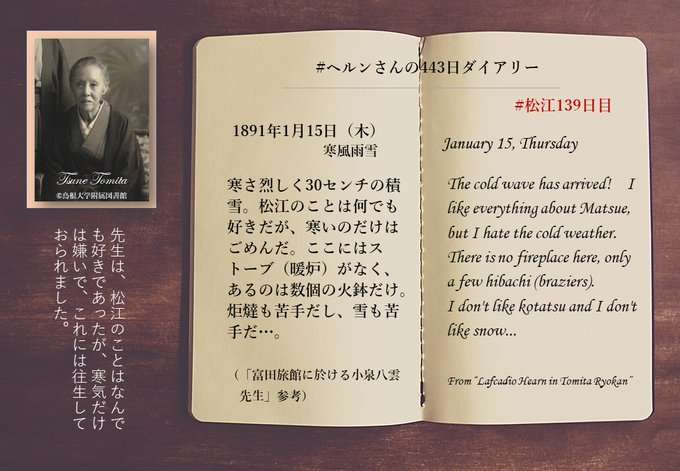 #ヘルンさんの443日ダイアリー
#松江139日目
1891年1月15日（木）
寒風雨雪
寒さ烈しく30センチの積
雪。松江のことは何でも
好きだが、寒いのだけは
ごめんだ。ここにはス
トーブ（暖炉）がなく、
あるのは数個の火鉢だけ。
炬燵も苦手だし、雪も苦
手だ…。
（「富田旅館に於ける小泉八雲
先生」参考）
January 15, Thursday
The cold wave has arrived! I
like everything about Matsue,
but I hate the cold weather.
There is no fireplace here, only
a few hibachi (braziers).
I don't like kotatsu and I don't
like snow...
From "Lafcadio Hearn in Tomita Ryokan"
Tsune Tomita
©島根大学附属図書館
先生は、松江のことはなんで
も好きであったが、寒気だけ
は嫌いで、これには往生して
おられました。